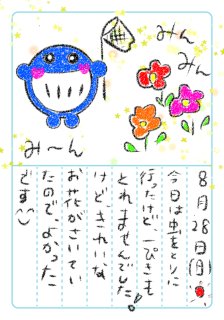 みん
みん
み〜ん
8月28日(月)
今日は虫をとりに
行ったけど、一ぴきも
とれませんでした!
けど、きれいな
お花がさいてい
たので、よかった
です